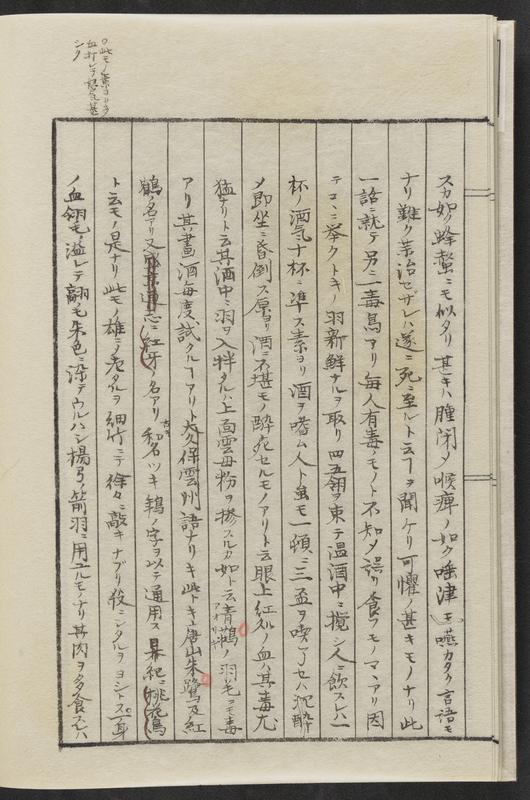 ○此モノ素ヨリ
血打シテ
シク
スカ如ク蜂螫ニモ似タリ甚キハ腫閉メ喉痺ノ如ク唾津モ嚥カタク言語モ
ナリ難ク業治セザレハ遂ニ死ニ至ルト云フヿヲ聞ケリ可懼ノ甚キモノナリ此
一話ニ就テ另ニ一毒鳥アリ毎人有毒ノモノト不知メ誤リ食フモノマヽアリ因
テコヽニ挙クトキノ羽新鮮ナルヲ取リ四五翎ヲ束テ温酒中ニ攪シ人ニ飲スレハ一
杯ノ酒気十杯ニ準ス素ヨリ酒ヲ嗜ム人ト虽モ一頓ニ三盃ヲ喫了セハ沉酔
メ即坐ニ昏倒ス原ヨリ酒ニ不堪モノ酔死セルモノアリト云眼上紅処ノ血ハ其毒尤
猛ナリト云其酒中ニ羽ヲ入拌タルハ上面雲母粉ヲ摻スルカ如ト云青鶴ノ羽毛モ毒
アリ其畫酒毎度試タルヿアリト大久保雲州語ナリキ此トキ唐山朱鷺及紅
鶴ノ名アリ又通志ニ紅牙ノ名アリ和名ツキ鴇ノ字ヲ以テ通用ス暴紀ニ桃花鳥
ト云モノ是ナリ此モノ雄ニ老タルヲ細竹ニテ徐々ニ敲キナブリ殺ニシタルヲヨシトス一身
ノ血翎毛ノ溢レテ翮モ朱色ニ染テウルハシ楊弓ノ箭羽ニ用ユルモノナリ其肉ヲ多食スレハ